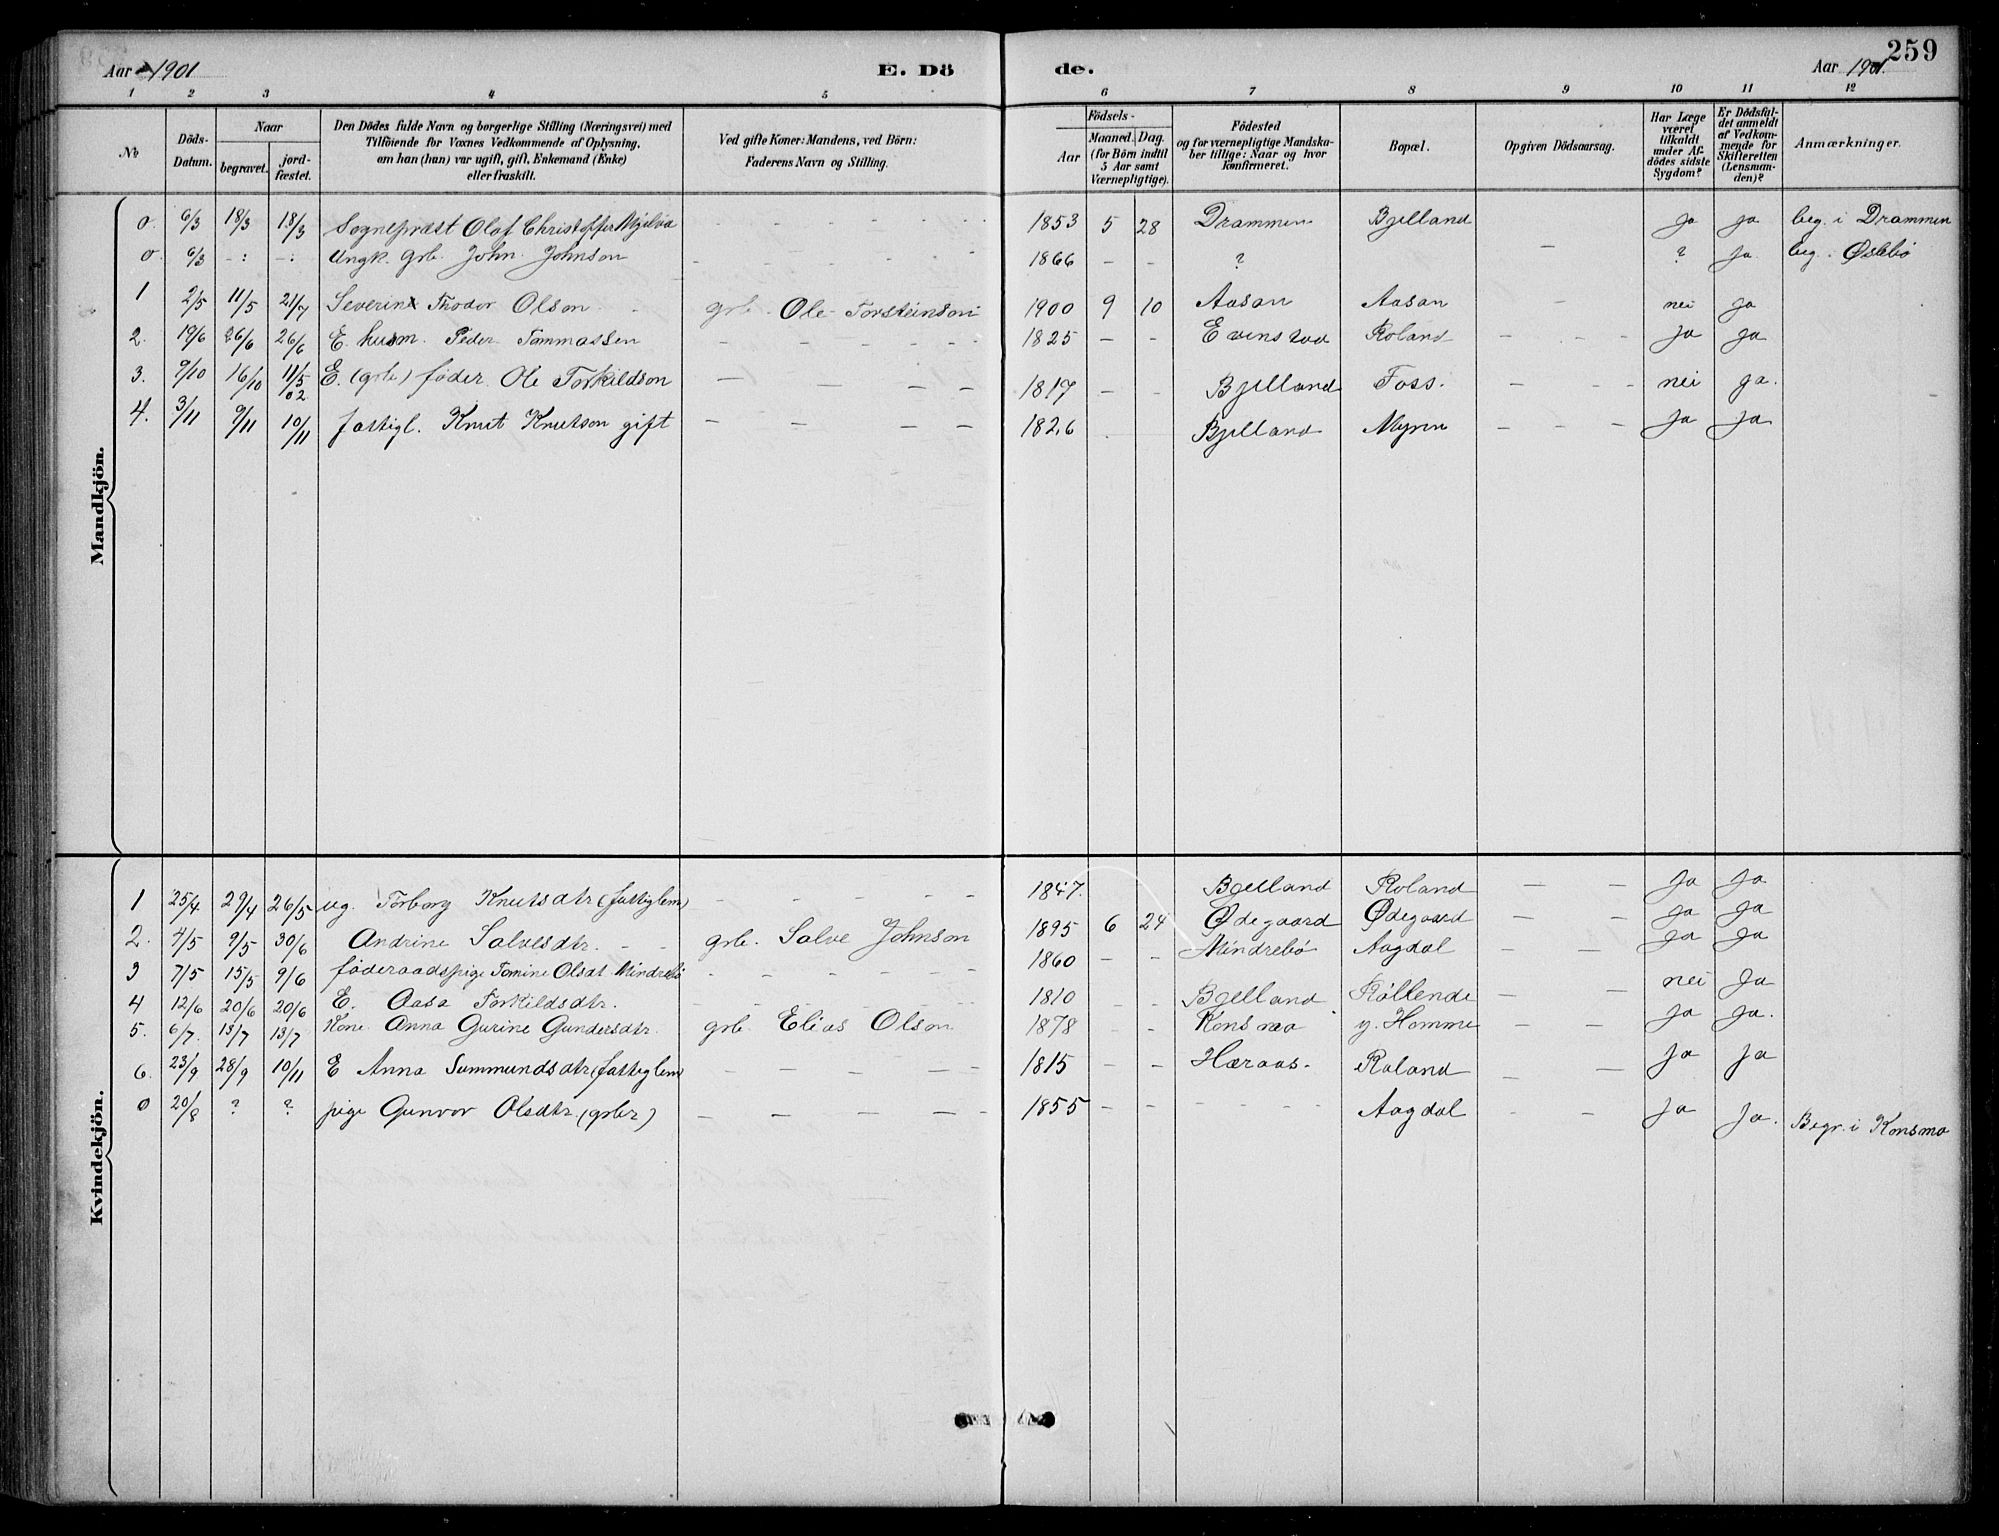 259
Aar 1901 E. Dö de. Aar 1901.
1 2 3 4 5 6 7 8 9 10 11 12
No Döds-Datum. Naar begravet. jordfæstet. Den Dödes fulde Navn og borgerlige Stilling (Næringsvei) med Tilföiende for Voxnes Vedkommende af Oplysning, om han (hun) var ugift, gift, Enkemand (Enke) eller fraskilt. Ved gifte Koner: Mandens, ved Börn: Faderens Navn og Stilling. Födsels- Aar Maaned. Dag. (for Börn indtil 5 Aar samt Værnepligtige). Födested og for værnepligtige Mandskaber tillige: Naar og hvor konfirmeret. Bopæl. Opgiven Dödsaarsag. Har Læge været tilkaldt under Afdödes sidste Sygdom? Er Dödsfaldet anmeldt af Vedkommende for Skifteretten (Lensmanden)? Anmærkninger.
Mandkjön.
0. 6/3 18/3 18/3 Sognepræst Olaf Christoffer Mjelva - - - - - 1853 5 28 Drammen Bjelland Ja Ja beg. i Drammen
0. 6/3 -:- -:- Ungk. grb. John. Johnson - - - - - 1866 - - ? - ? Ja. beg. i Øslebø
1 2/5 11/5 21/7 Severin Thodor Olson - grb. Ole Torsteinson 1900 9 10 Aasan Aasan - nei Ja
2. 19/6 26/6 26/6 E. husm. Peder Tommassen - - - - - 1825 - - Evenstad Roland - - - Ja Ja
3. 9/10 16/10 11/5 02 E. (grb) föder. Ole Torkildson - - - - - 1817 - - Bjelland Foss. - - - nei Ja.
4. 3/11 9/11 10/11 fattigl. Knut Knutson gift - - - - - 1826 Bjelland Myren - - - Ja Ja
Kvindekjön.
1 25/4 29/4 26/5 ug. Torborg Knutsdtr (fattiglem) - - - - - 1847. Bjelland Roland - - Ja Ja
2. 4/5 9/5 30/6 Andrine Salvesdtr. - - grb. Salve Johnson 1895 6 24 Ødegaard Ødegaard - - Ja Ja
3 7/5 15/5 9/6 föderaadspige Tomine Olsdt Mindrebø - - - - - 1860 - - Mindrebø Aagdal Ja Ja
4 12/6 20/6 20/6 E. Aasa Torkildsdtr. - - - - - 1810 - - Bjelland Röllende - - nei Ja
5. 6/7. 13/7 13/7 Kone Anna Gurine Gundersdtr. grb. Elias Olson 1878 - - Konsmo y. Homme - - Ja Ja.
6. 23/9 28/9 10/11 E Anna Sammundsdtr (fattiglem) - - - - - 1815 - - Hæraas. Roland - - Ja Ja
0 20/8 ? ? pige Gunvor Olsdtr. (grbr) - - - - - 1855 - - - - - - Aagdal - - Ja Ja. Begr. i Konsmo